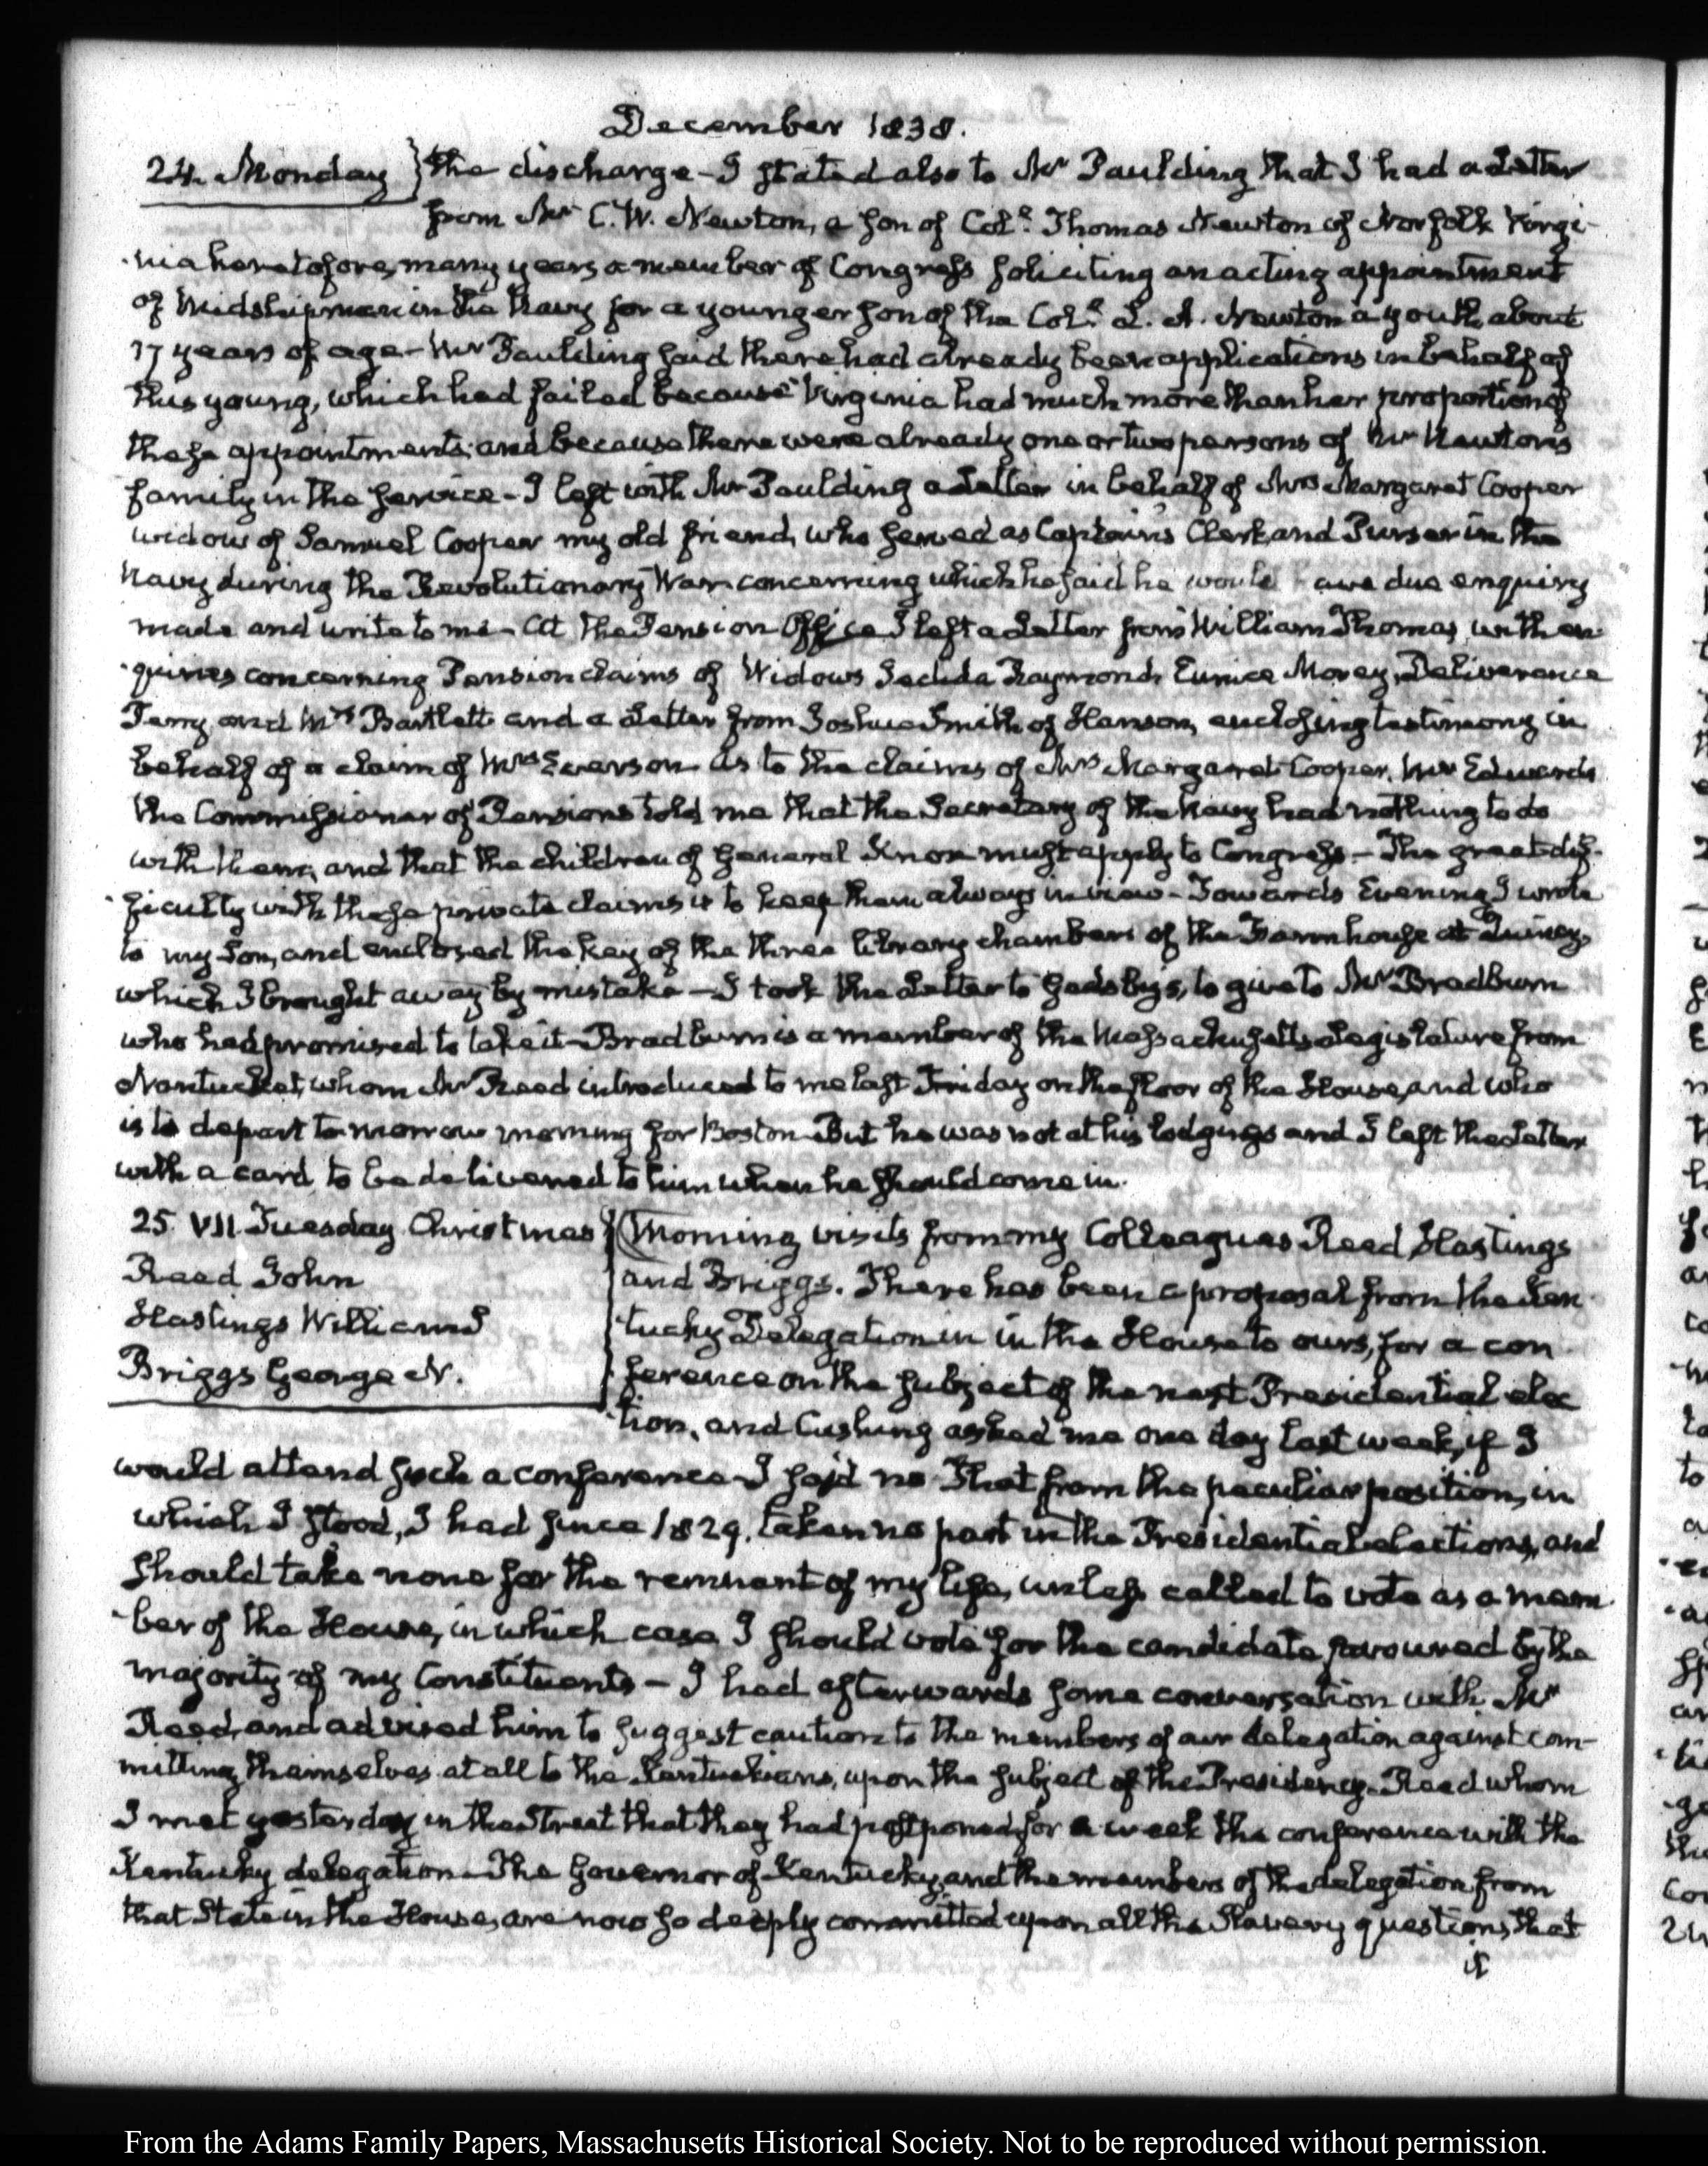 December 1838.
24. Monday } the discharge - I stated also to Mr Paulding that I had a Letter
from Mr C. W. Newton, a son of Coll. Thomas Newton of Norfolk Virgi-
-nia heretofore, many years a member of Congress soliciting an acting appointment
of Midshipman in the Navy for a younger son of the Coll. L. A. Newton a youth about
17 years of age - Mr Paulding said there had already been applications in behalf of
this young, which had failed because Virginia had much more than her proportion of
these appointments; and because there were already one or two persons of Mr Newton's
family in the service - I left with Mr Paulding a Letter in behalf of Mrs Margaret Cooper
widow of Samuel Cooper my old friend, who served as Captain's Clerk and Purser in the
Navy during the Revolutionary War concerning which he said he would have due enquiry
made and write to me - At the Pension Office I left a Letter from William Thomas, with en-
-quiries concerning Pension claims of Widows Raymond, Eunice Morey, Deliverance
and Mrs Bartlett and a Letter from Joshua Smith of Hanson, enclosing testimony in
behalf of a claim of Mrs Everson. As to the claims of Mrs Margaret Cooper, Mr Edwards
the Commissioner of Pensions told me that the Secretary of the Navy had nothing to do
with them, and that the children of General Knox must apply to Congress. - The great dif-
-ficulty with these private claims is to keep them always in view - Towards Evening I wrote
to my Son, and enclosed the key of the three library chambers of the Farm house at Quincy,
which I brought away by mistake - I took the Letter to Gadsby's, to give to Mr Bradburn
who had promised to take it - Bradburn is a member of the Massachusetts Legislature from
Nantucket, whom Mr Reed introduced to me last Friday on the floor of the House, and who
is to depart to-morrow morning for Boston. But he was not at his lodgings and I left the Letter
with a card to be delivered to him when he should come in.
25. VII. Tuesday. Christmas } Morning visits from my Colleagues Reed, Hastings
Reed John
and Briggs. There has been a proposal from the Ken-
Hastings William S
-tucky Delegation in in the House to ours, for a con
Briggs George N.
-ference on the subject of the next Presidential elec
-tion, and Cushing asked me one day last week, if I
would attend such a conference - I said no - That from the peculiar position, in
which I stood, I had since 1829. taken no part in the Presidential elections, and
should take none for the remnant of my life, unless called to vote as a mem-
-ber of the House, in which case I should vote for the candidate favoured by the
majority of my Constituents - I had afterwards some conversation with Mr
Reed, and advised him to suggest caution to the members of our delegation against com-
mitting themselves at all to the Kentuckians, upon the subject of the Presidency. Reed whom
I met yesterday in the Street that they had postponed for a week the conference with the
Kentucky delegation - The Governor of Kentucky, and the members of the delegation from
that State in the House, are now so deeply committed upon all the Slavery questions, that
it
From the Adams Family Papers, Massachusetts Historical Society. Not to be reproduced without permission.